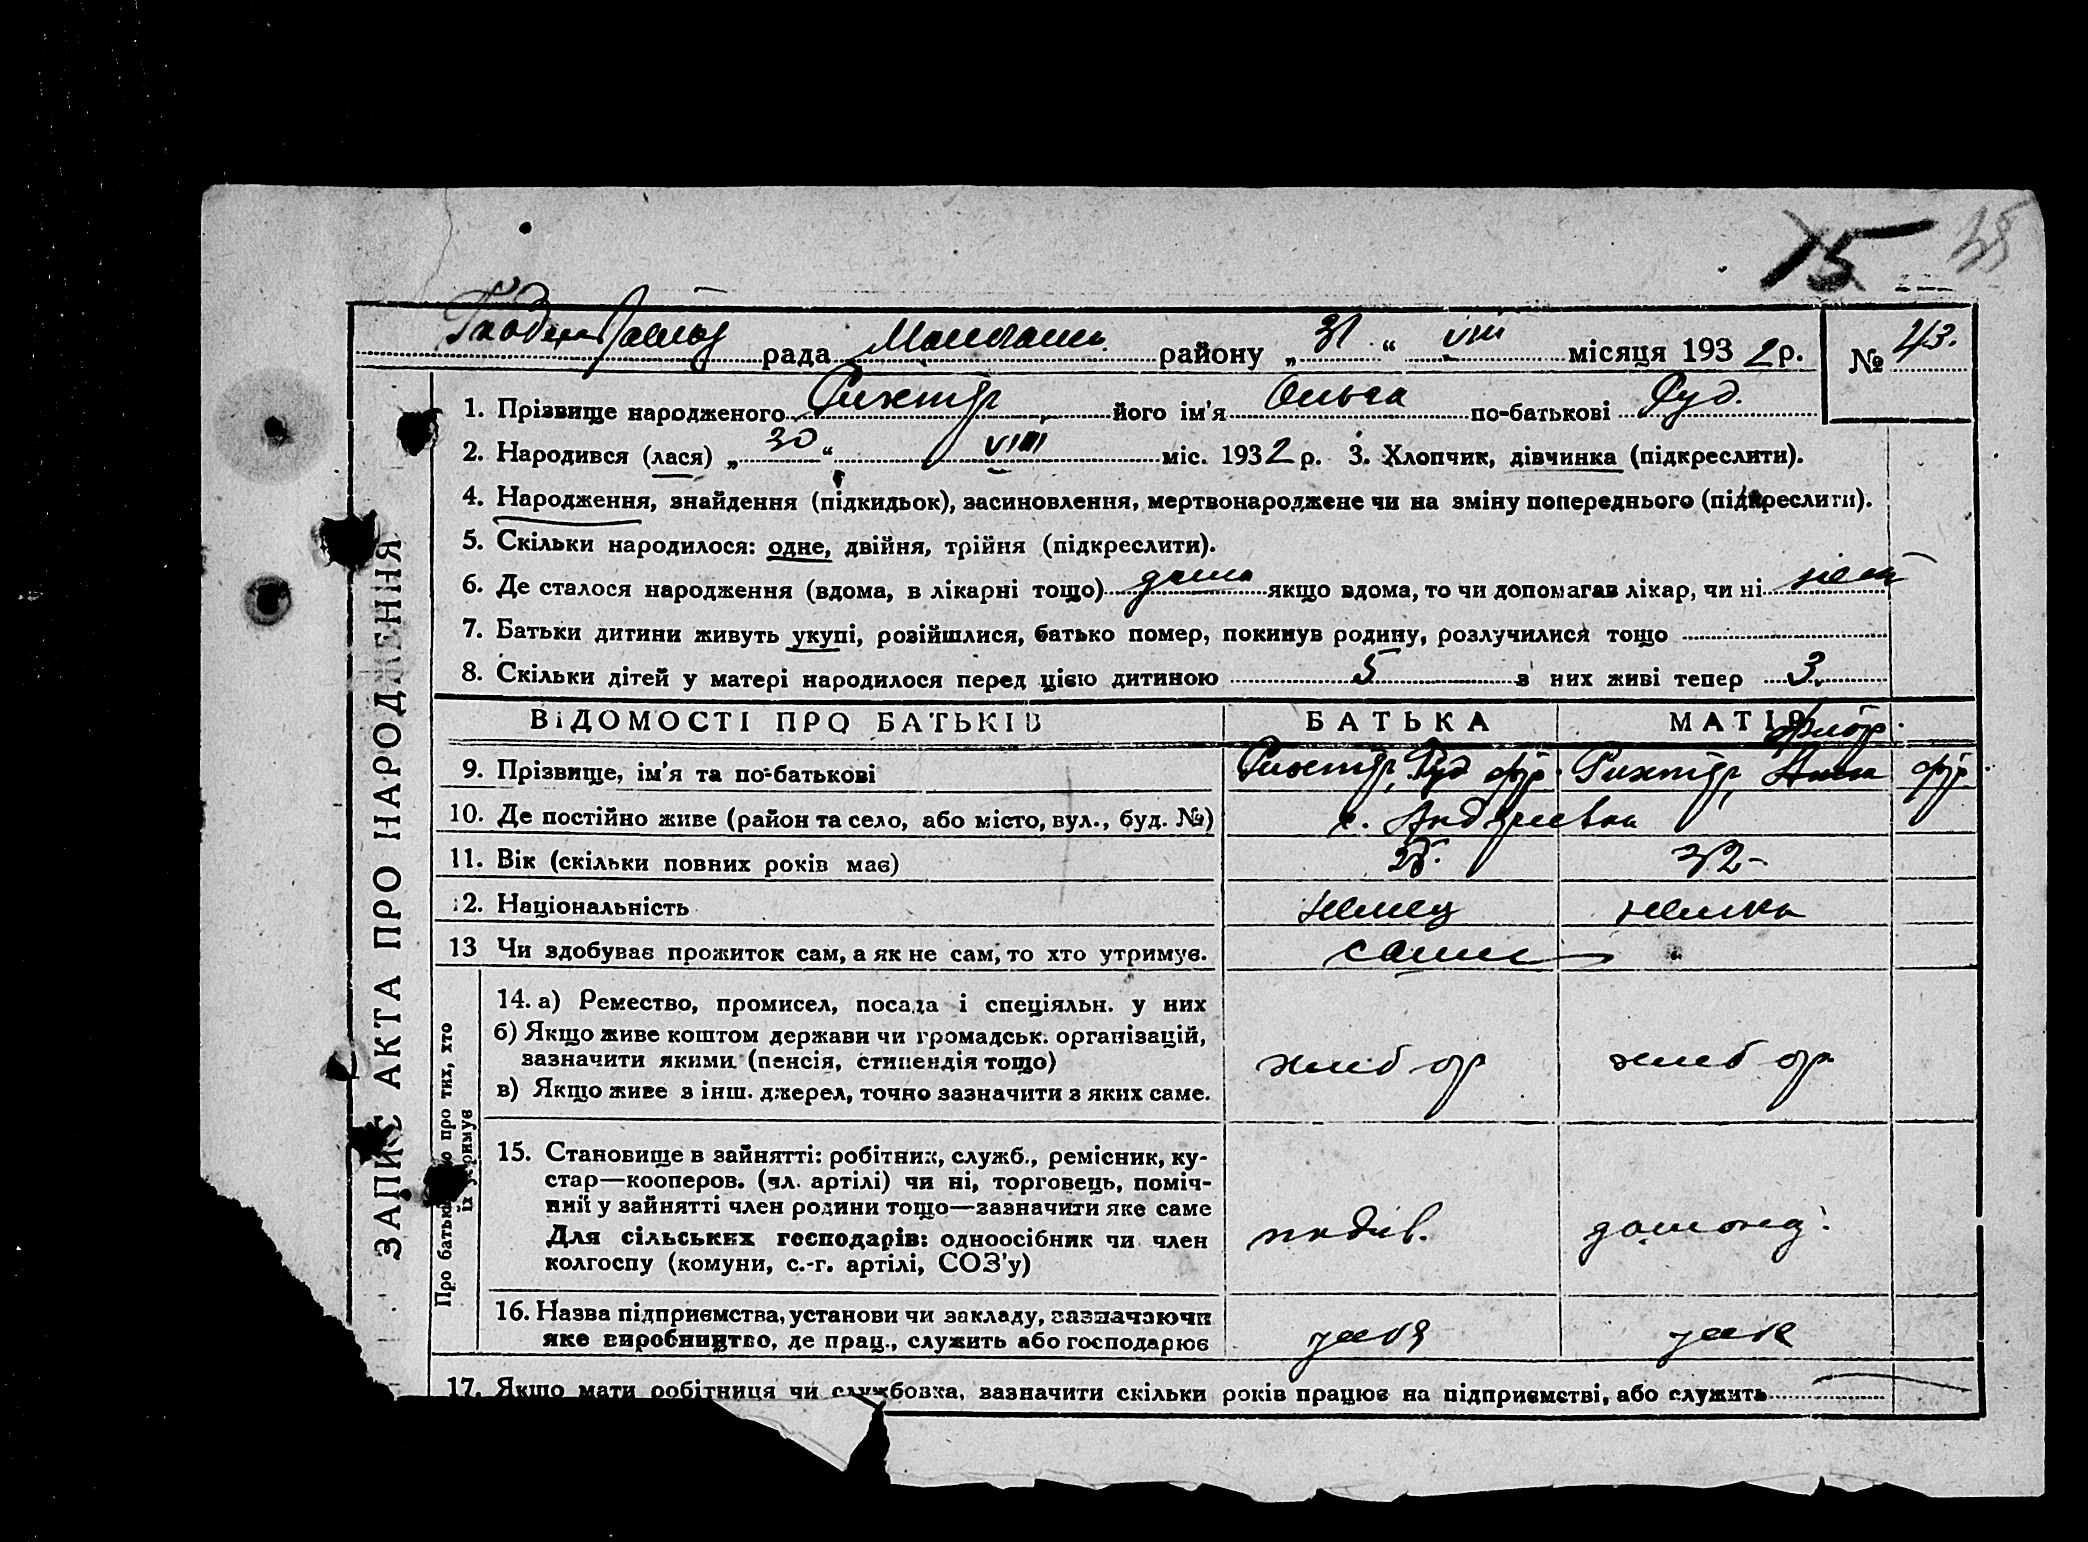 15
рада района „31“ VIII місяця 1932 р. № 43.
1. Прізвище народженого Рихтер його ім'я Ольга по-батькові Руд.
2. Народився (лася) „30“ VIII міс. 1932 р. 3. Хлопчик, дівчинка (підкреслити).
4. Народження, знайдення (підкидьок), засиновлення, мертвонароджене чи на зміну попереднього (підкреслити).
5. Скільки народилося: одне, двійня, трійня (підкреслити).
6. Де сталося народження (вдома, в лікарні тощо) дома якщо вдома, то чи допомагав лікар, чи ні нет
7. Батьки дитини живуть укупі, розійшлися, батько помер, покинув родину, розлучилися тощо
8. Скільки дітей у матері народилося перед цією дитиною 5 з них живі тепер 3.
ВІДОМОСТІ ПРО БАТЬКІВ БАТЬКА МАТІР
9. Прізвище, ім'я та по-батькові Рихтер, Руд. Рихтер,
10. Де постійно живе (район та село, або місто, вул., буд. №) х. Андреевка
11. Вік (скільки повних років має) 32
12. Національність немец немка
13 Чи здобуває прожиток сам, а як не сам, то хто утримує. сами
14. а) Ремество, промисел, посада і спеціяльн. у них
б) Якщо живе коштом держави чи громадськ. організацій,
зазначити якими (пенсія, стипендія тощо) хлебор хлебор
в) Якщо живе з інш. джерел, точно зазначити з яких саме.
15. Становище в зайнятті: робітник, служб., ремісник, ку-
стар—кооперов. (чл. артілі) чи ні, торговець, поміч-
ний у зайнятті член родини тощо—зазначити яке саме
Для сільських господарів: одноосібник чи член индив. домохоз.
колгоспу (комуни, с.-г. артілі, СОЗ'у)
16. Назва підприємства, установи чи закладу, зазначаючи
яке виробництво, де прац., служить або господарює
17. Якщо мати робітниця чи службовка, зазначити скільки років працює на підприємстві, або служить
ЗАПИС АКТА ПРО НАРОДЖЕННЯ
Про батьків про тих, хто
їх утримує